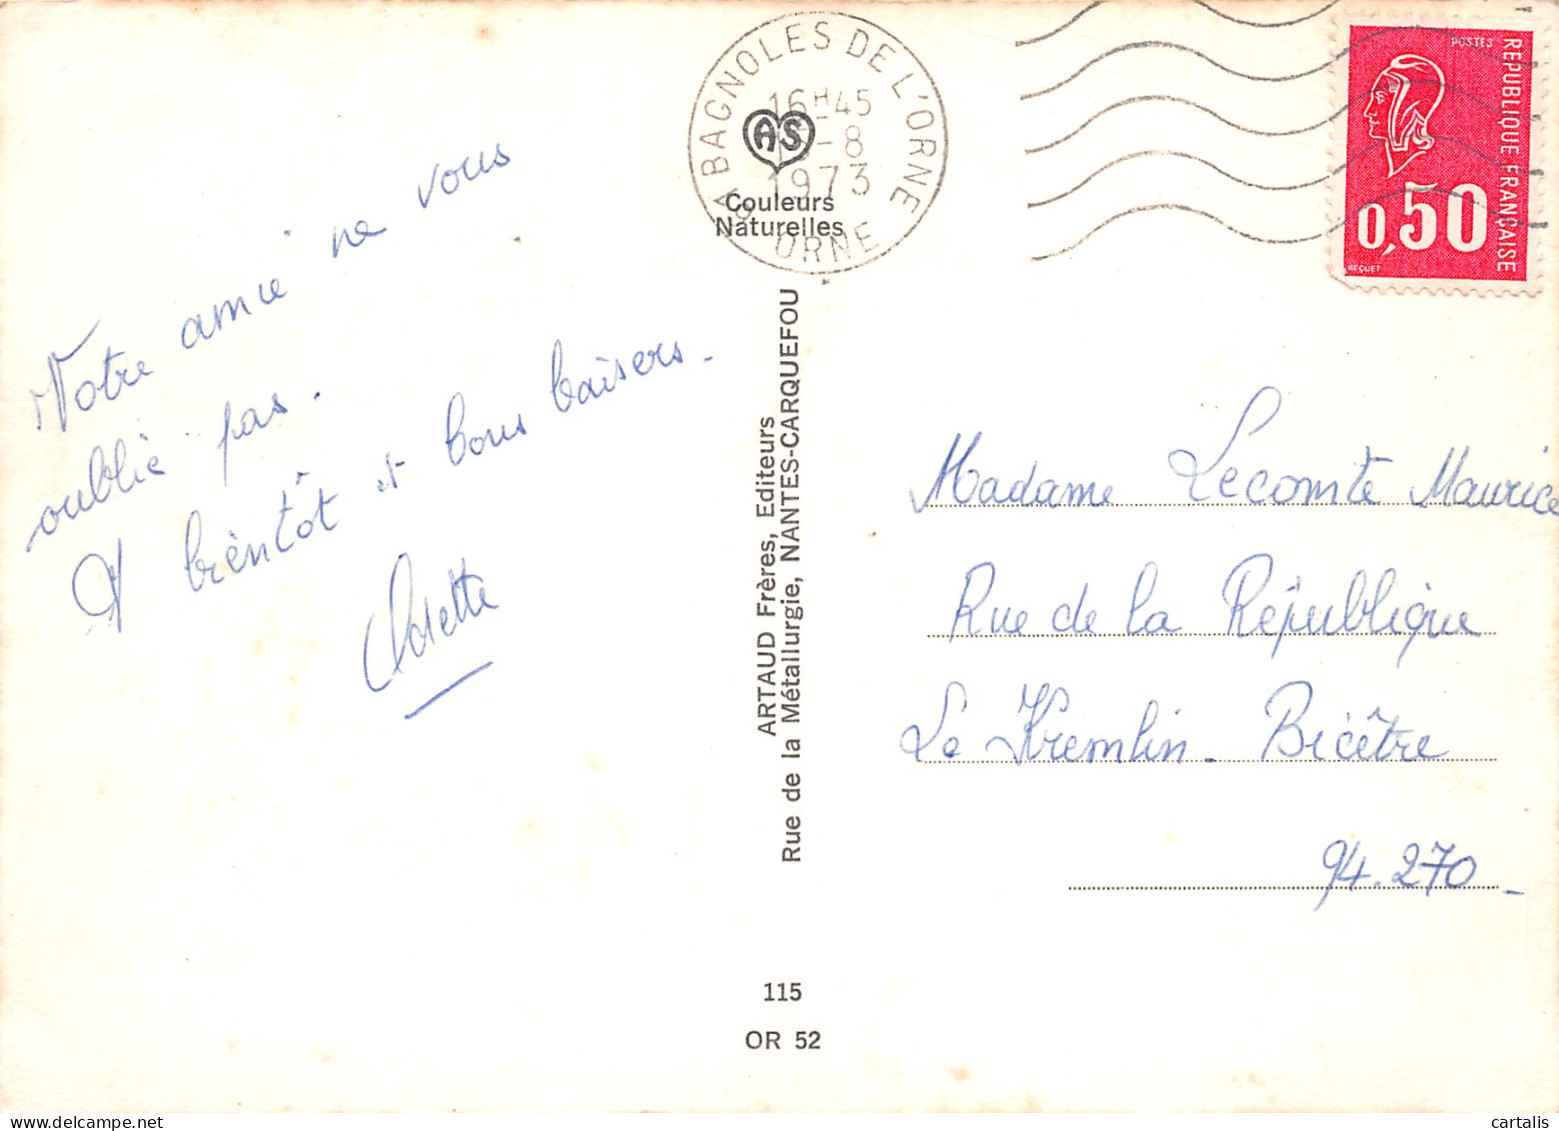 Votre amie ne vous
oublie pas.
A bientôt et bons baisers.
Odette
61 BAGNOLES DE L'ORNE
16H45
-8
1973
ORNE
AS
Couleurs
Naturelles
ARTAUD Frères, Editeurs
Rue de la Métallurgie, NANTES-CARQUEFOU
115
OR 52
POSTES
REPUBLIQUE FRANÇAISE
0,50
BEQUET
Madame Lecomte Maurice
Rue de la République
Le Kremlin-Bicêtre
94.270-
cartalis